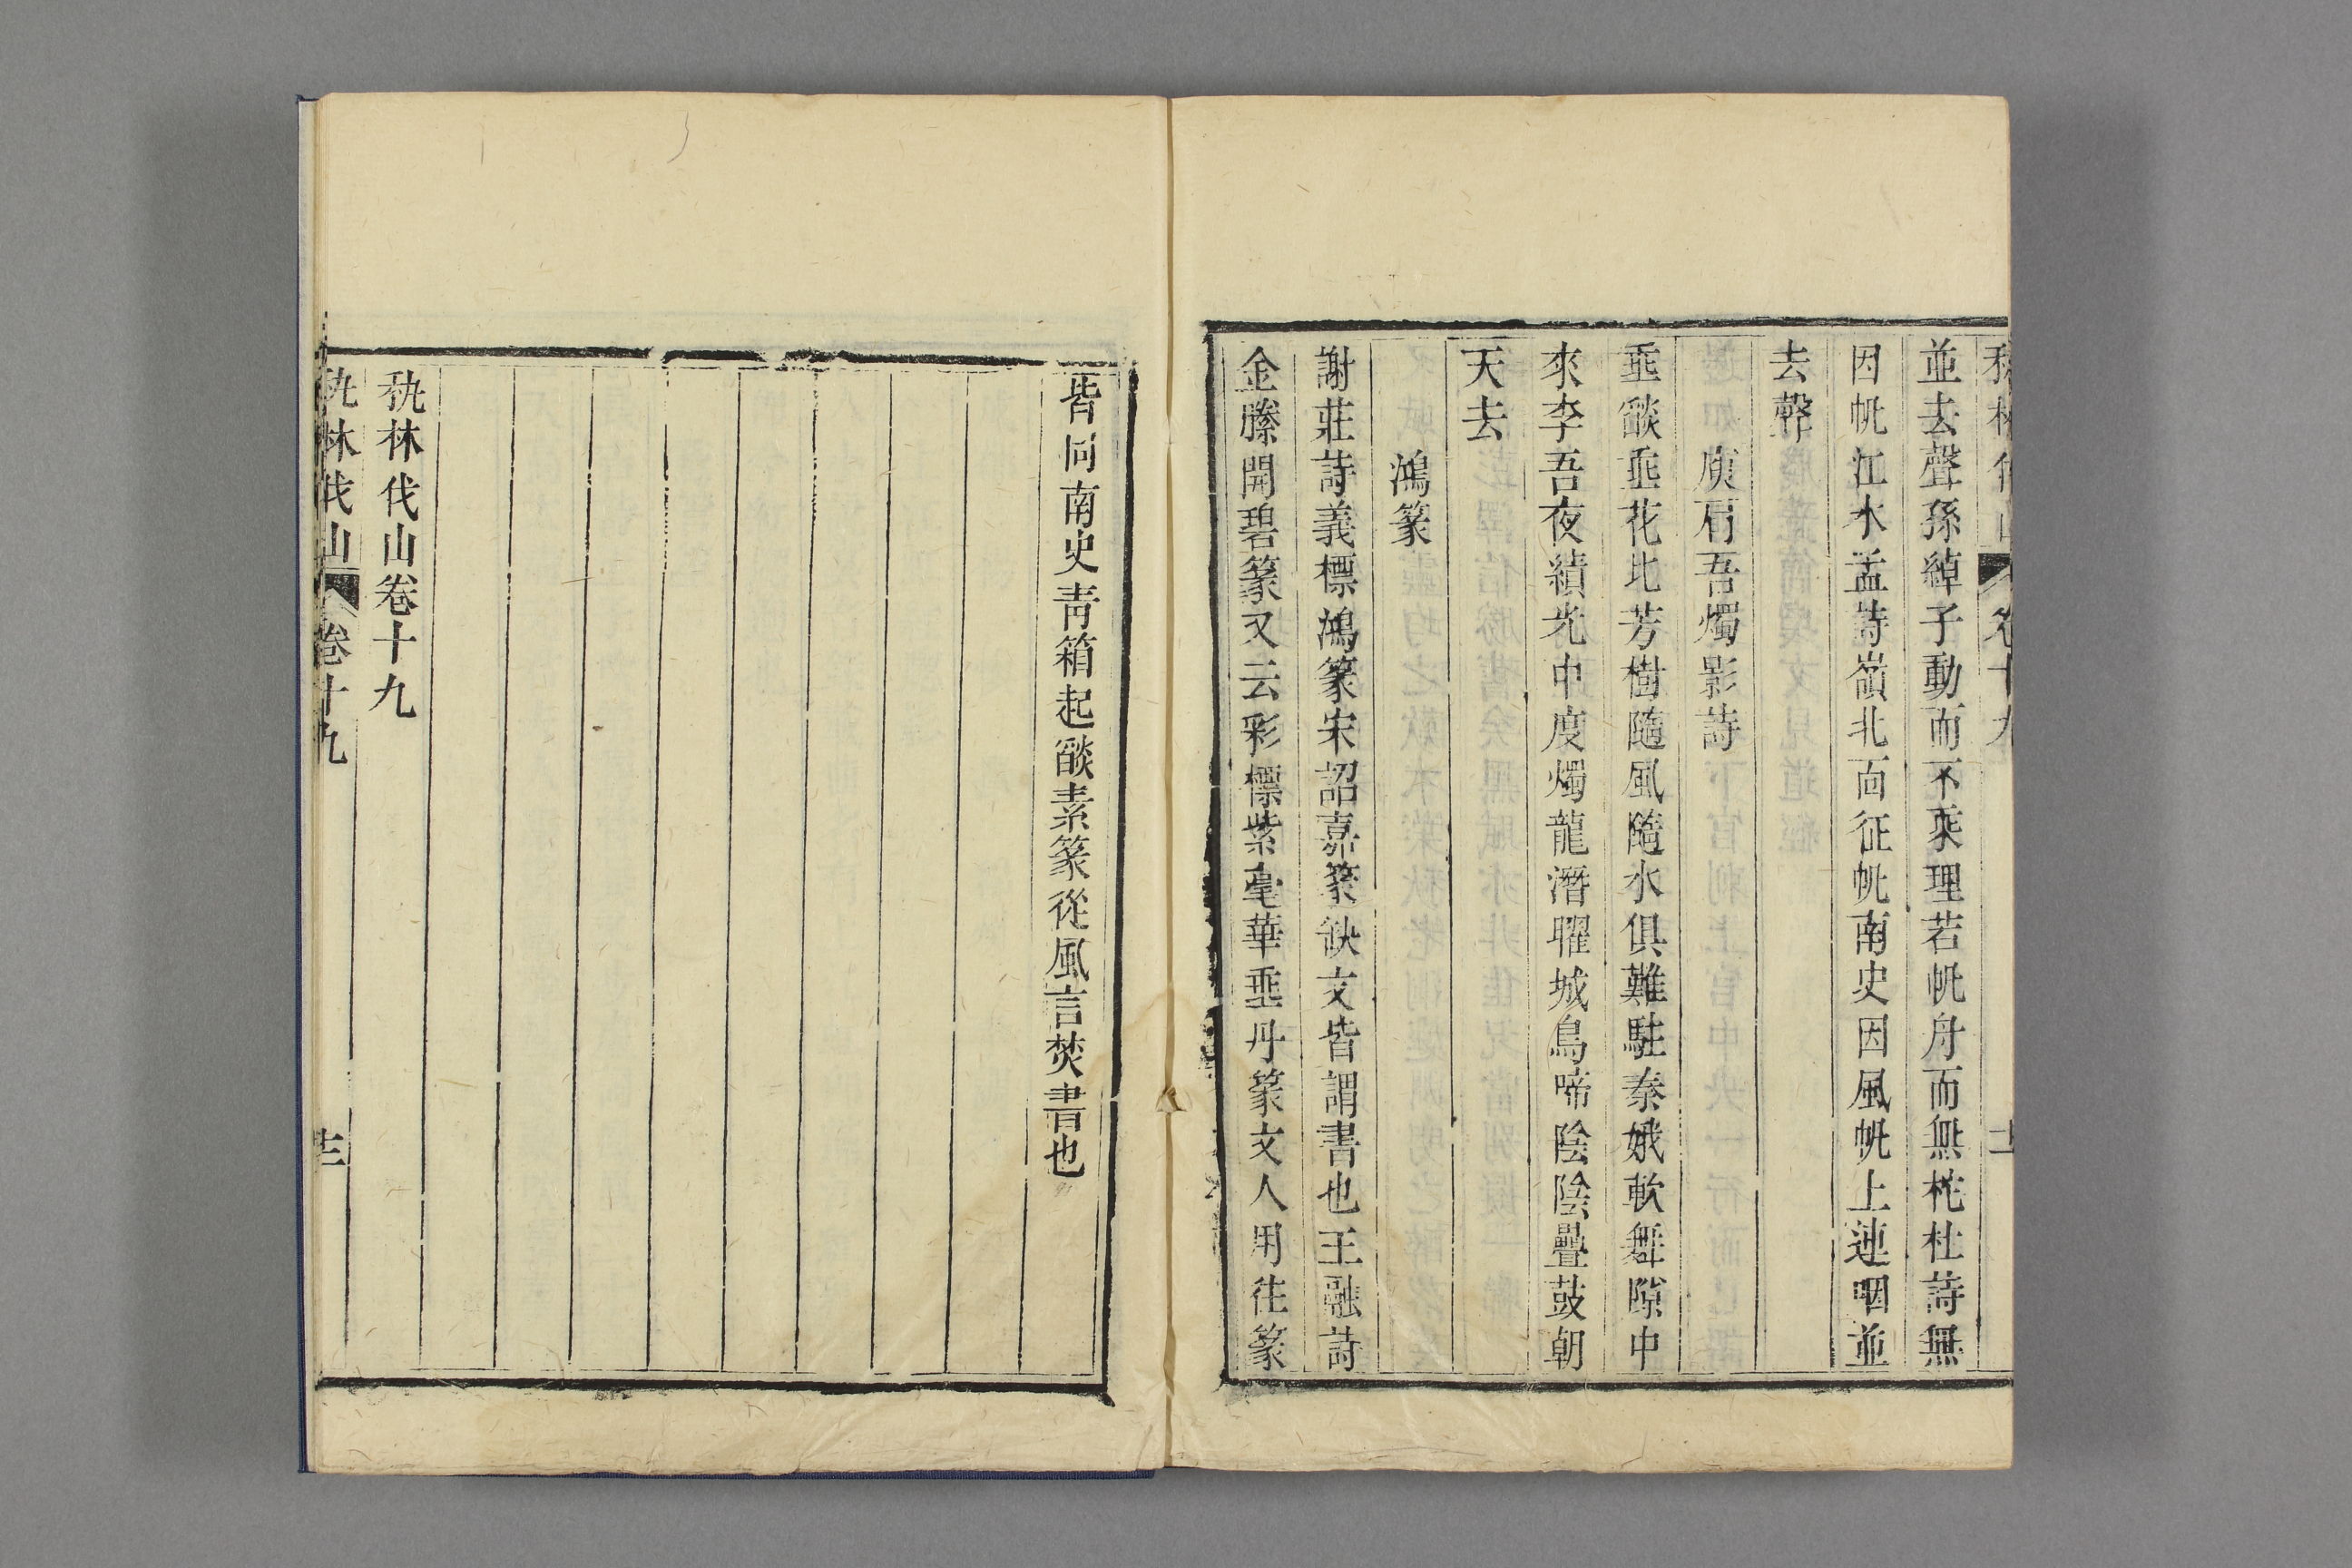 並去聲孫綽子動而不乘理若帆舟而無柁杜詩無
因帆江水孟詩嶺北向征帆南史因風帆上連咽並
去聲
庾肩吾燭影詩
垂燄垂花比芳樹隨風隨水俱難駐秦娥軟舞隙中
來李吾夜績光中度燭龍潛曜城烏啼陰陰疊鼓朝
天去
鴻篆
謝莊詩義標鴻篆宋詔嘉篆缺文皆謂書也王融詩
金縢開碧篆又云彩標紫毫華垂丹篆文人用往篆
皆同南史青箱起燄素篆從風言焚書也
秇林伐山卷十九
秇林伐山
卷十九